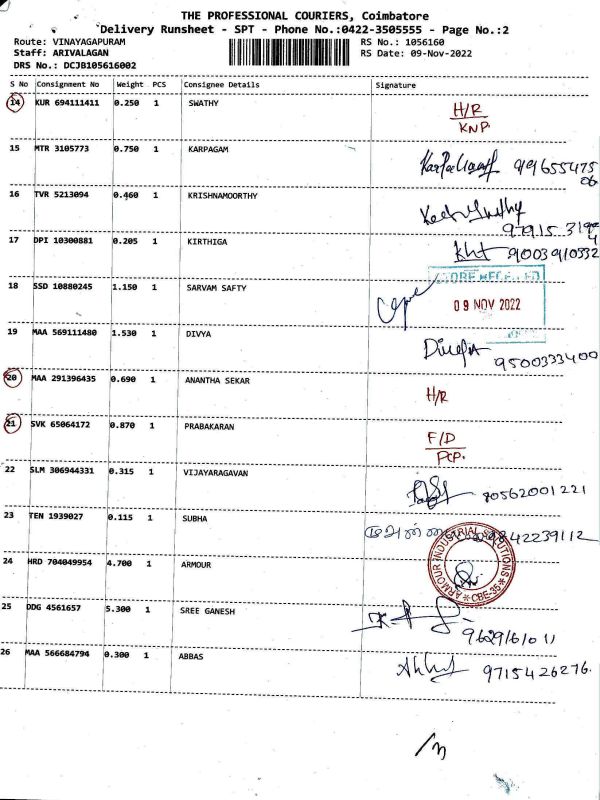 THE PROFESSIONAL COURIERS, Coimbatore
Delivery Runsheet - SPT - Phone No.:0422-3505555 - Page No.:2
Route: VINAYAGAPURAM RS No.: 1056160
Staff: ARIVALAGAN RS Date: 09-Nov-2022
DRS No.: DCJB105616002
S No Consignment No Weight PCS Consignee Details Signature
14 KUR 694111411 0.250 1 SWATHY H/R
KNP.
15 MTR 3105773 0.750 1 KARPAGAM
16 TVR 5213094 0.460 1 KRISHNAMOORTHY
17 DPI 10300881 0.205 1 KIRTHIGA 9003910332
18 SSD 10880245 1.150 1 SARVAM SAFTY
09 NOV 2022
19 MAA 569111480 1.530 1 DIVYA
9500333400
20 MAA 291396435 0.690 1 ANANTHA SEKAR H/R
21 SVK 65064172 0.870 1 PRABAKARAN F/D
PCP.
22 SLM 306944331 0.315 1 VIJAYARAGAVAN
23 TEN 1939027 0.115 1 SUBHA 9842239112
24 HRD 704049954 4.700 1 ARMOUR ARMOUR INDUSTRIAL SOLUTIONS
CBE-35
25 DDG 4561657 5.300 1 SREE GANESH
26 MAA 566684794 0.300 1 ABBAS 9715426276.